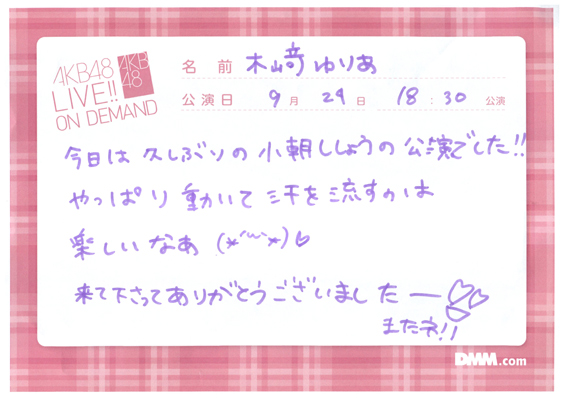 AKB48
LIVE!!
ON DEMAND
AKB
48
名 前 木﨑ゆりあ
公演日 9月 29日 18:30 公演
今日は久しぶりの小朝ししょうの公演でした!!
やっぱり動いて汗を流すのは
楽しいなあ (*´ω`*)♡
来て下さってありがとうございましたー
またネ!!
DMM.com